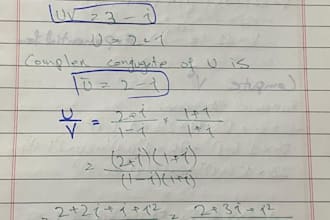 UV = 3 - i
U = 2+i
Complex conjugate of U is
Ū = 2 - i
U/V = 2+i/1-i × 1+i/1+i
= (2+i)(1+i)/(1-i)(1+i)
= 2+2i+i+i² = 2+3i+i²